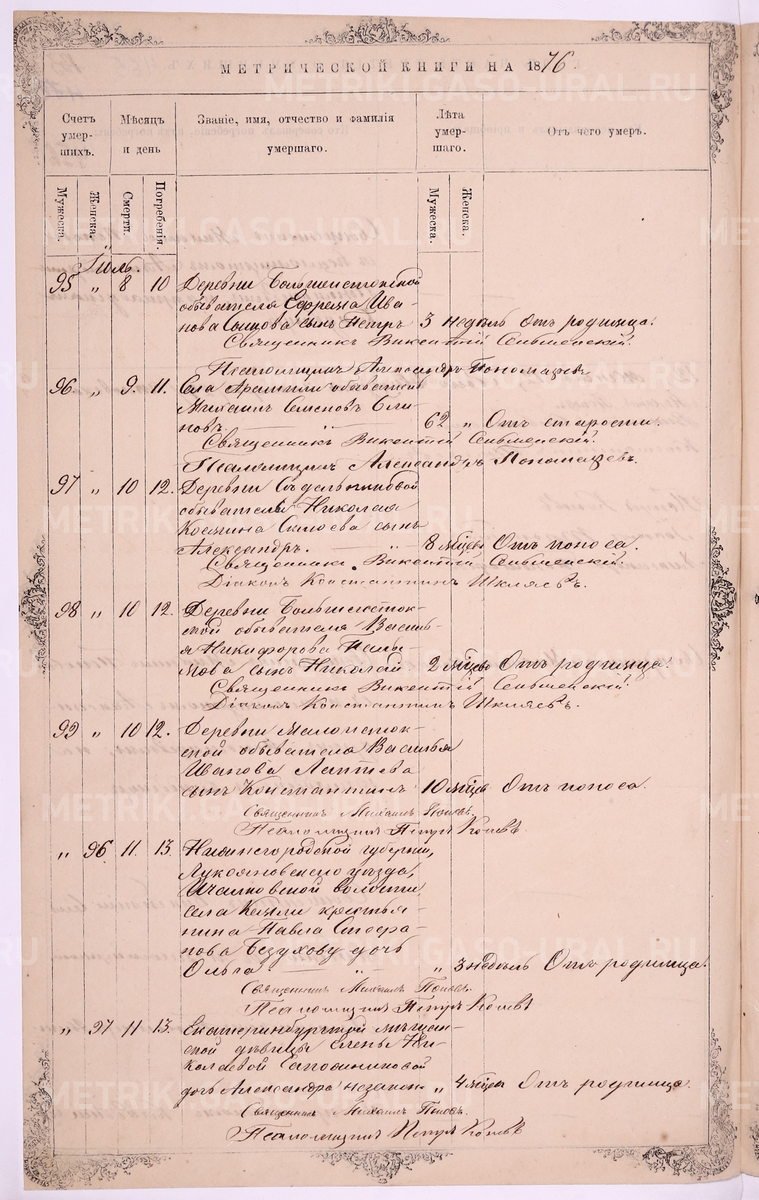 МЕТРИЧЕСКОЙ КНИГИ НА 1876.
Счетъ умер- шихъ. Мѣсяцъ и день Званіе, имя, отчество и фамилія умершаго. Лѣта умер- шаго. Отъ чего умеръ.
Мужеска. Женска. Смерти. Погребенія. Мужеска. Женска.
Іюль.
95 „ 8 10 Деревни Большеистокской
обывателя Ефрема Ива-
нова сынъ Петръ 3 недѣль Отъ родимца.
Священникъ Викентій
Псаломщикъ Александръ Пономаревъ
96 „ 9. 11. Села Арамили обыватель
Михаилъ Семеновъ
новъ „ 62 „ Отъ старости.
Священникъ Викентій
Псаломщикъ Александръ Пономаревъ.
97 „ 10 12. Деревни Сѣдельниковой
обывателя Николая
Козмина сынъ
Александръ. „ 8 мѣсяц Отъ поноса.
Священникъ Викентій
Діаконъ Константинъ Шкляевъ.
98 „ 10 12. Деревни Большеисток-
ской обывателя Василь-
я Никифорова
мова сынъ Николай 2 мѣсяц Отъ родимца.
Священникъ Викентій
Діаконъ Константинъ Шкляевъ.
99 „ 10 12. Деревни Малоисток-
ской обывателя Василья
Иванова Лаптева
сынъ Константинъ 10 мѣсяц Отъ поноса.
Священникъ Михаилъ Поповъ.
Псаломщикъ Петръ
„ 96. 11. 13. Нижнегородской губерніи,
Лукояновскаго уѣзда,
Ичалковской волости
села Кемли крестья-
нина Павла Стефа-
нова Безухову дочь
Ольга „ „ 3 недѣль Отъ родимца.
Священникъ Михаилъ Поповъ.
Псаломщикъ Петръ
„ 97 11 13. Екатеринбургской мѣщан-
ской дѣвицы Елены Ни-
колаевой Сапожниковой
дочь Александра незакон „ 4 мѣсяца Отъ родимца.
Священникъ Михаилъ Поповъ.
Псаломщикъ Петръ
METRIKI.GASO-URAL.RU